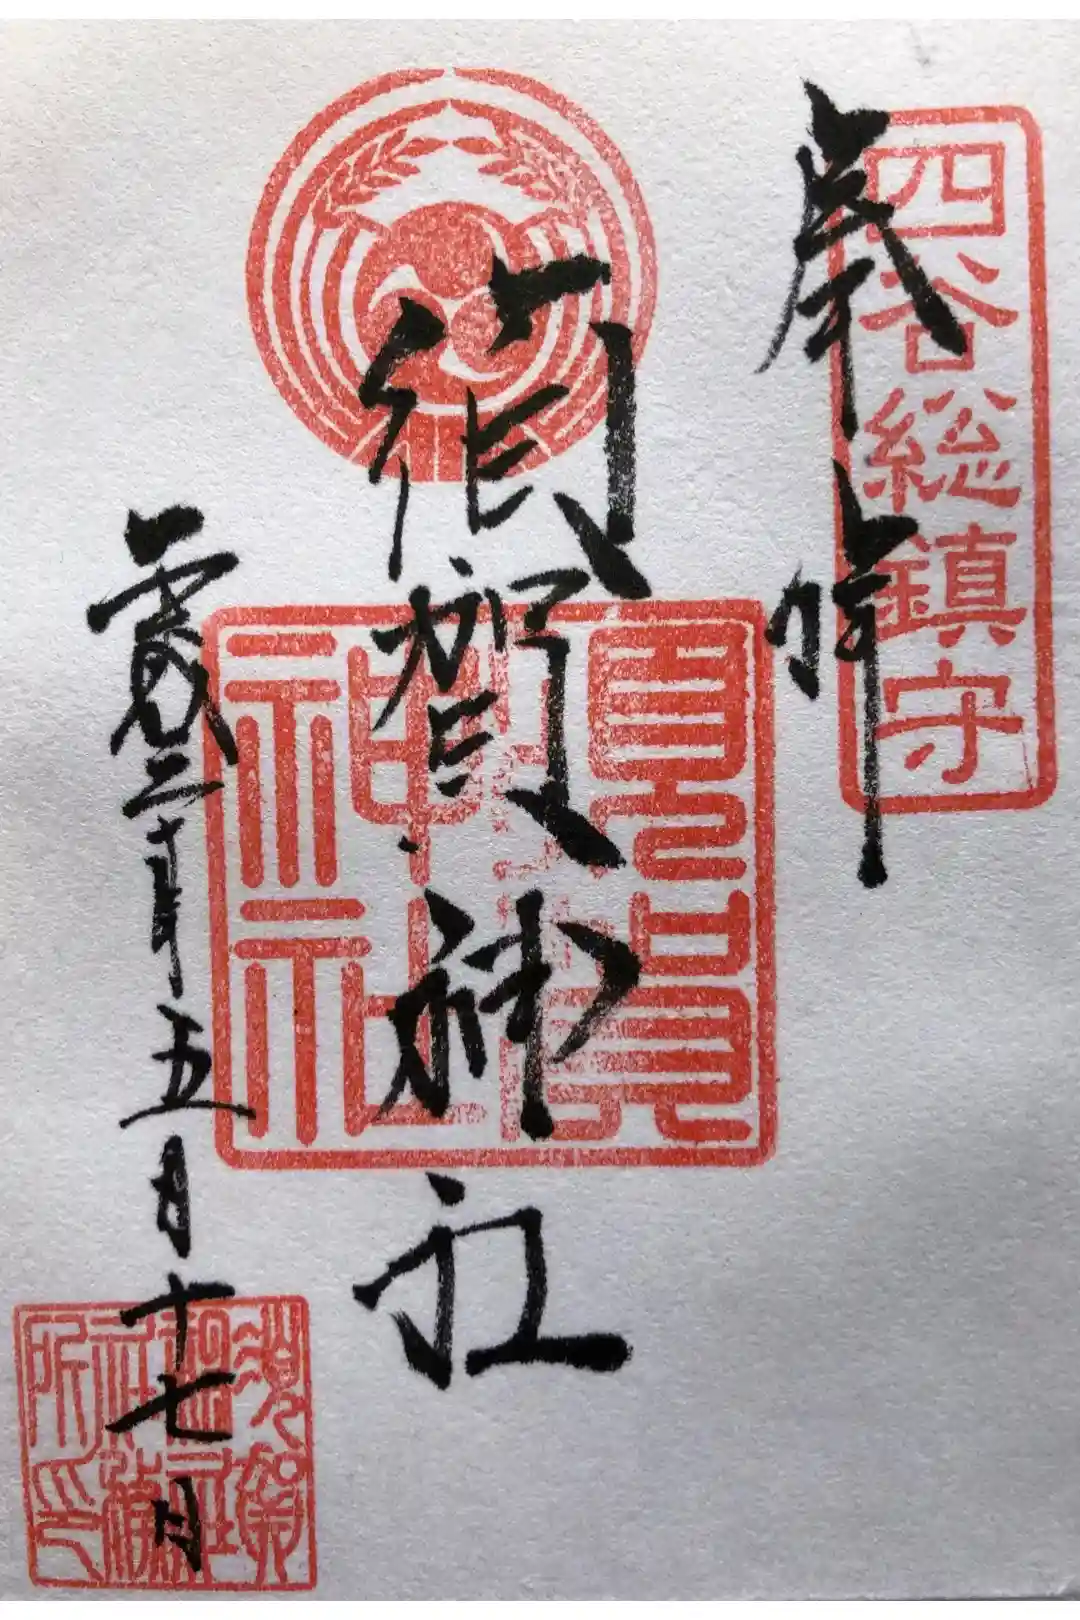 四谷総鎮守
奉拝
須賀神社
須賀神社
五月十七日
須賀神社社務所印